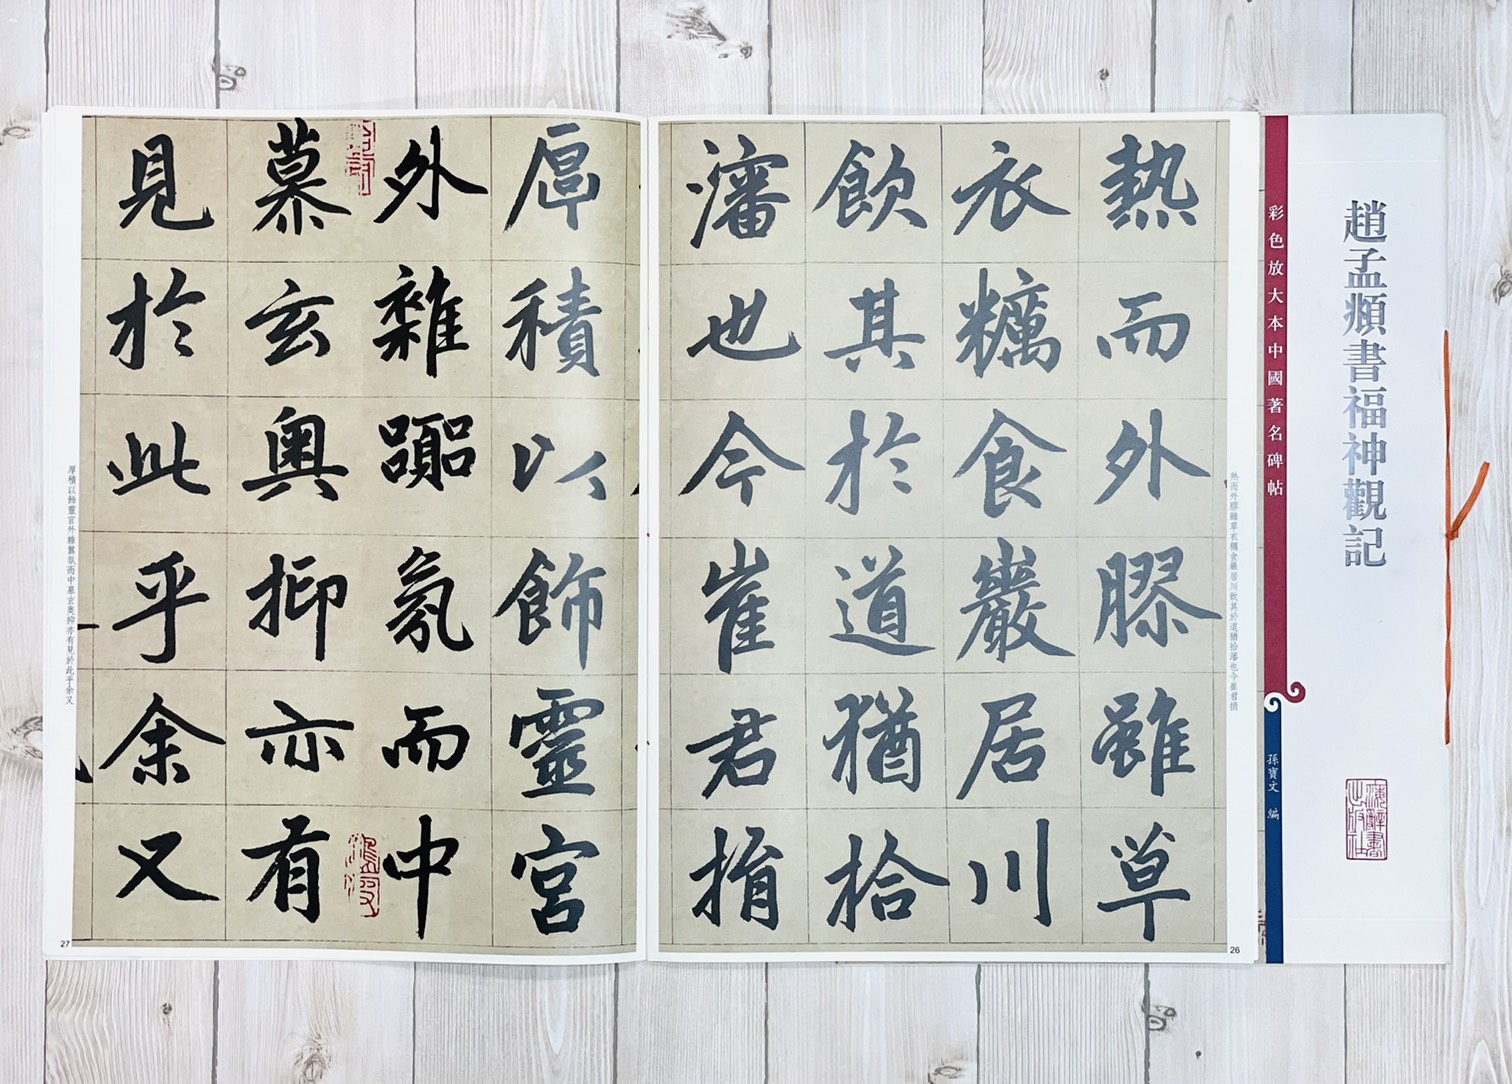 趙孟頫書福神觀記
彩色放大本中國著名碑帖
孫寶文 編
熱而外膠雖草
衣糲食巖居川
飲其於道猶拾
瀋也今崔君捐
熱而外膠雖草衣糲食巖居川飲其於道猶拾瀋也今崔君捐
26
厚積以飾靈宮
外雜囂氛而中
慕玄奧抑亦有
見於此乎余又
厚積以飾靈宮外雜囂氛而中慕玄奧抑亦有見於此乎余又
27